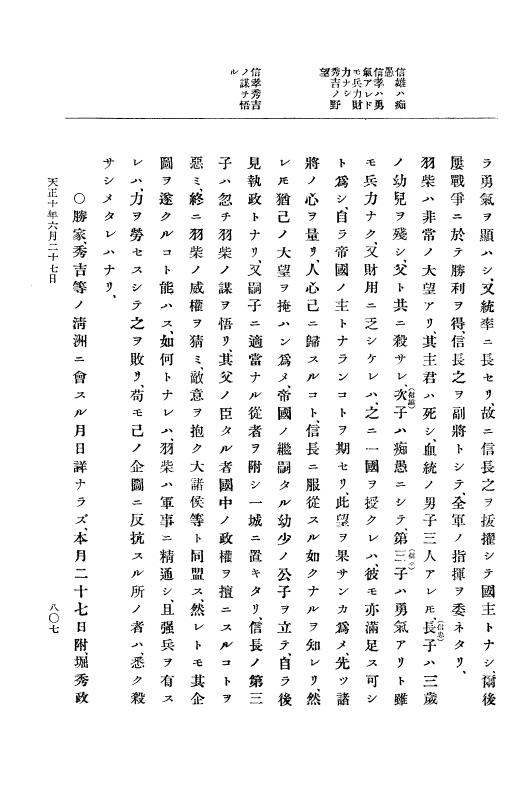 信雄ハ痴
愚
信孝ハ勇
氣アレド
モ兵力財
力ナシ
秀吉ノ野
望
信孝秀吉
ノ謀ヲ悟
ル
ラ勇氣ヲ顯ハシ、又統率ニ長セリ、故ニ信長之ヲ拔擢シテ國主トナシ、爾後
屢戰爭ニ於テ勝利ヲ得、信長之ヲ副將トシテ、全軍ノ指揮ヲ委ネタリ、
羽柴ハ非常ノ大望アリ、其主君ハ死シ、血統ノ男子三人アレモ、長子(信忠)ハ三歲
ノ幼兒ヲ殘シ、父ト共ニ殺サレ、次子(信雄)ハ痴愚ニシテ、第三子(信孝)ハ勇氣アリト雖
モ兵力ナク、又財用ニ乏シケレハ、之ニ一國ヲ授クレハ、彼モ亦滿足ス可シ
ト爲シ、自ラ帝國ノ主トナランコトヲ期セリ、此望ヲ果サンカ爲メ、先ツ諸
將ノ心ヲ量リ、人心己ニ歸スルコト、信長ニ服從スル如クナルヲ知レリ、然
レモ猶己ノ大望ヲ掩ハン爲メ、帝國ノ繼嗣タル幼少ノ公子ヲ立テ、自ラ後
見執政トナリ、又嗣子ニ適當ナル從者ヲ附シ一城ニ置キタリ、信長ノ第三
子ハ忽チ羽柴ノ謀ヲ悟リ、其父ノ臣タル者國中ノ政權ヲ擅ニスルコトヲ
惡ミ、終ニ羽柴ノ威權ヲ猜ミ、敵意ヲ抱ク大諸侯等ト同盟ス、然レトモ其企
圖ヲ遂クルコト能ハス、如何トナレハ、羽柴ハ軍事ニ精通シ、且强兵ヲ有ス
レハ、力ヲ勞セスシテ之ヲ敗リ、苟モ己ノ企圖ニ反抗スル所ノ者ハ、悉ク殺
サシメタレハナリ、
○勝家、秀吉等ノ淸洲ニ會スル月日詳ナラズ、本月二十七日附、堀秀政
天正十年六月二十七日
八〇七